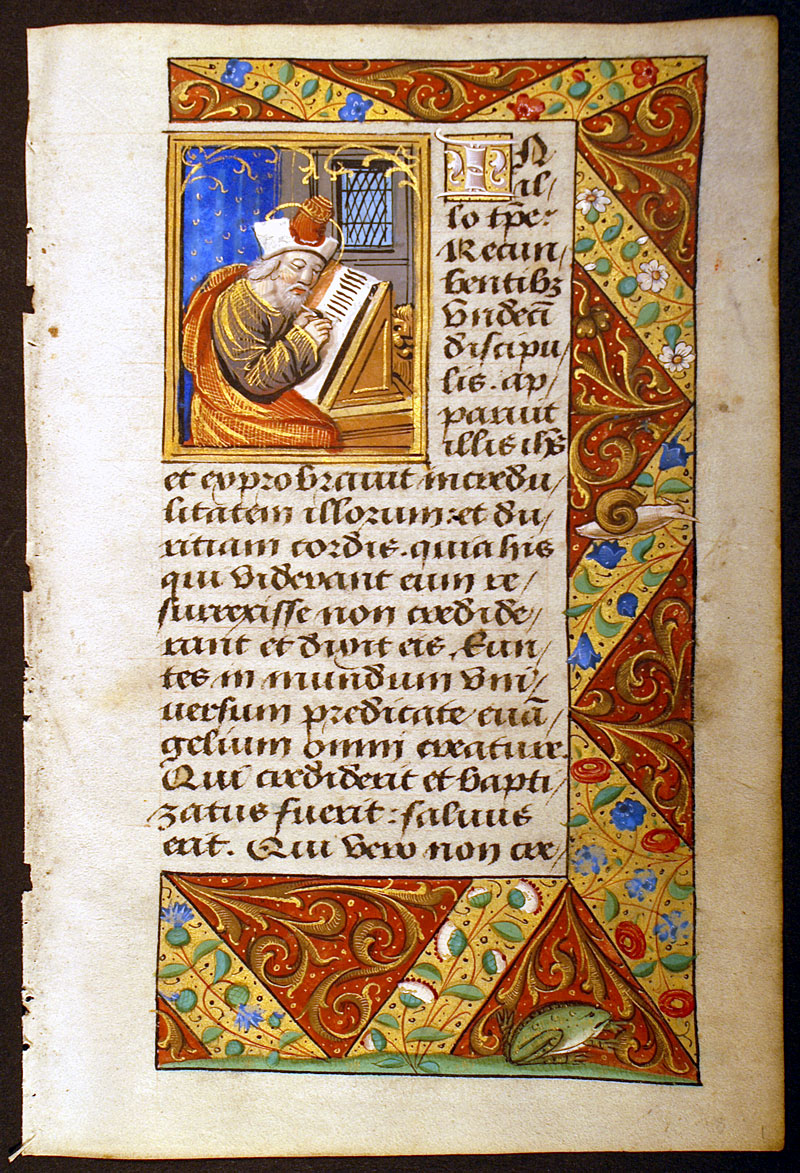 IN
il-
lo tp̄e:
Recum/
bentibz
vndeci̅
discipu/
lis. ap/
paruit
illis ih̄s
et exprobrauit incredu/
litatem illorum: et du/
ritiam cordis. quia his
qui viderant eum re/
surrexisse non credide/
rant et dixit eis. Eun/
tes in mundum vni/
uersum predicate euā/
gelium omni creature.
Qui crediderit et bapti/
zatus fuerit: saluus
erit. Qui vero non cre/